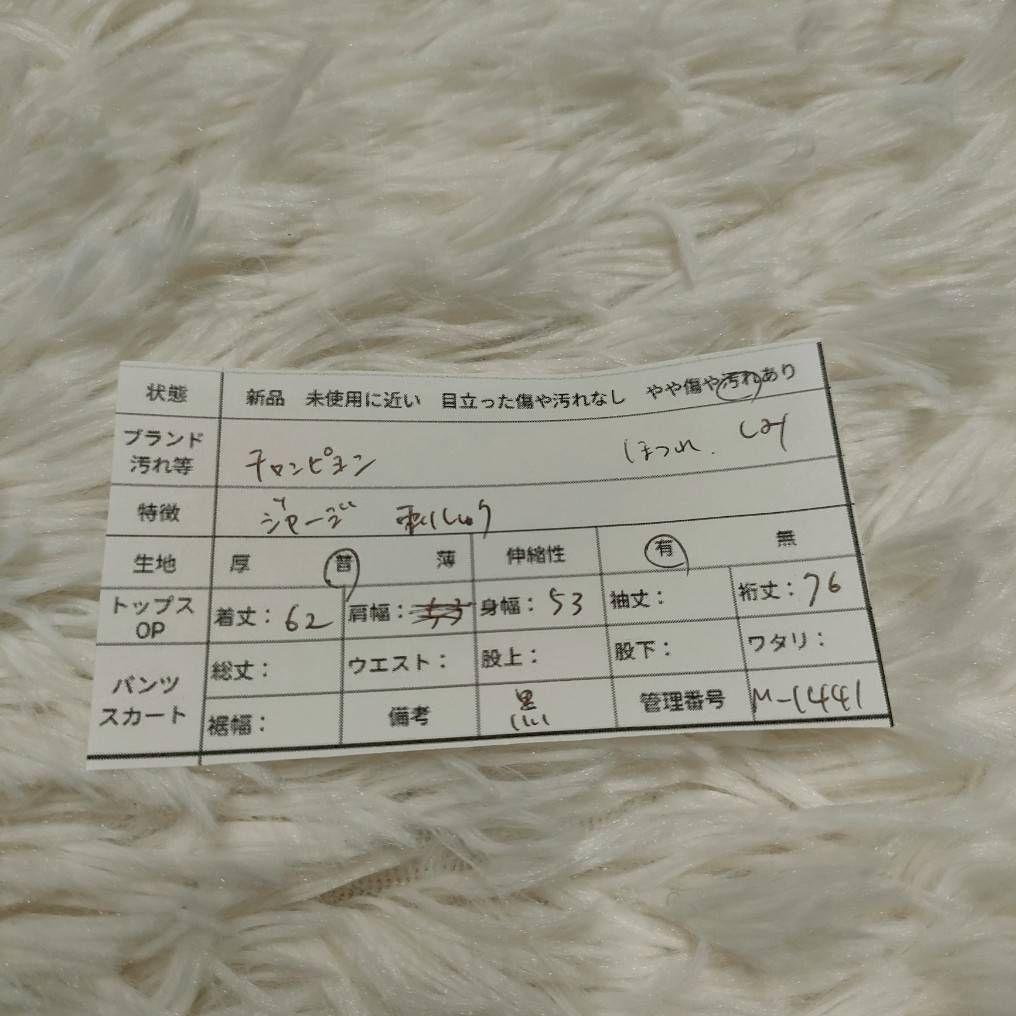 状態 新品 未使用に近い 目立った傷や汚れなし やや傷や汚れあり
ブランド 汚れ等 チャンピオン ほつれ. しみ
特徴 ジャージ 刺しゅう
生地 厚 普 薄 伸縮性 有 無
トップス OP 着丈：62 肩幅： 身幅：53 袖丈： 裄丈：76
パンツ スカート 総丈： ウエスト： 股上： 股下： ワタリ：
裾幅： 備考 黒 管理番号 M-14441